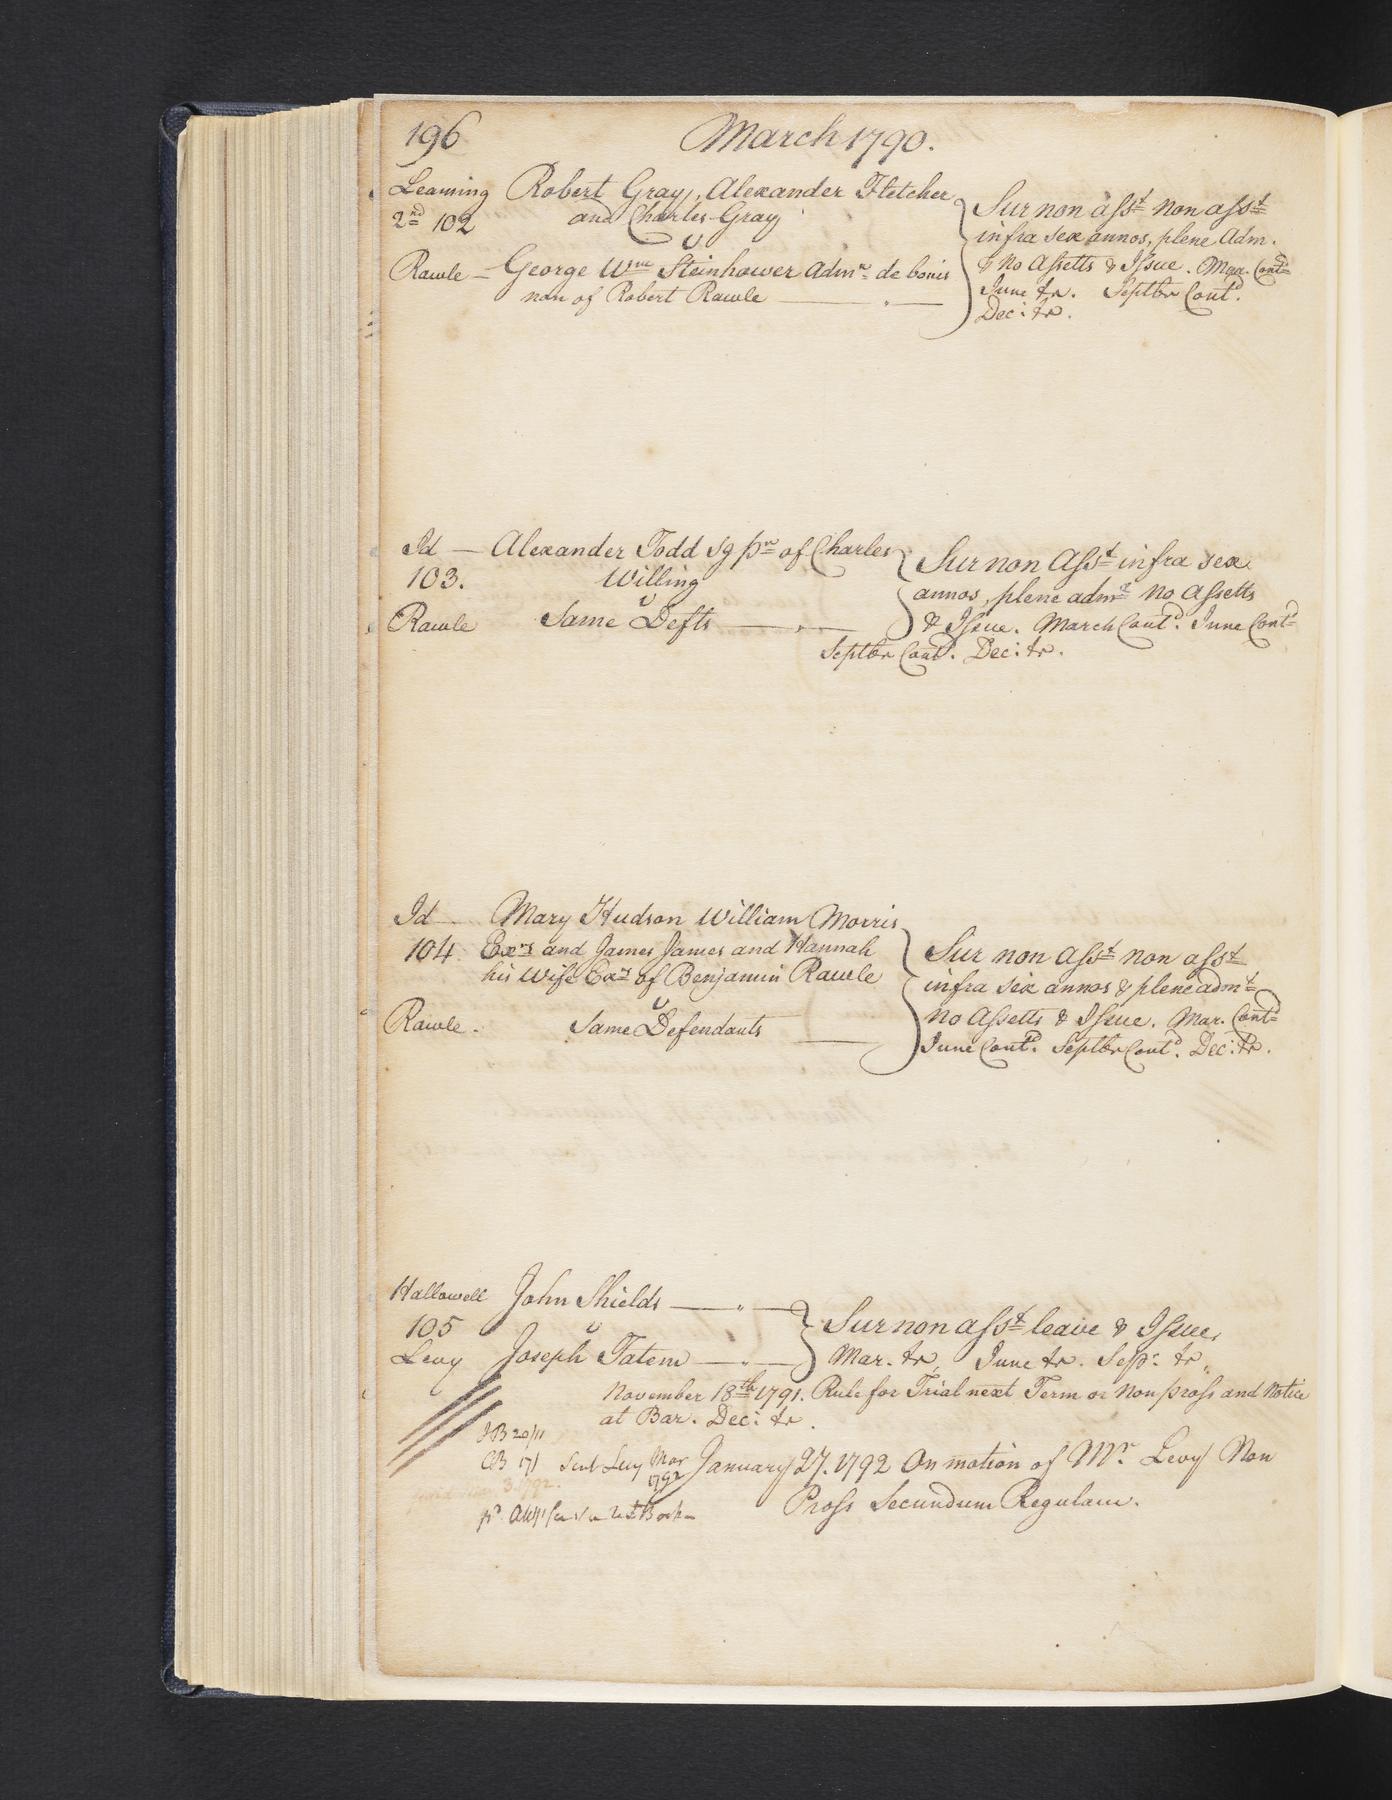 196 March 1790.
Leaming Robert Gray, Alexander Fletcher
2nd 102 and Charles Gray
v
Rawle — George Wm Steinhower Admr de bonis
non of Robert Rawle
Sur non asst non asst
infra sex annos, plene Adm.
& No Assetts & Issue. Mar. Contd
June tr. Septbr Contd.
Dec: tr.
Id — Alexander Todd sg pr of Charles
103. Willing
v
Rawle Same Defts
Sur non Asst infra sex
annos, plene admt No Assetts
& Issue. March Contd. June Contd
Septbr Contd. Dec: tr.
Id Mary Hudson William Morris
104 Exrs and James James and Hannah
his Wife Exs of Benjamin Rawle
v
Rawle. Same Defendants
Sur non asst non asst
infra sex annos & plene admt
No Assetts & Issue. Mar. Contd
June Contd. Septbr Contd. Dec: tr.
Hallowell John Shields
105 v
Levy Joseph Tatem
Sur non asst leave & Issue,
Mar. tr, June tr. Sep: tr,
November 18th 1791. Rule for Trial next Term or Non pross and Notice
at Bar. Dec: tr.
January 27. 1792 On motion of Mr. Levy Non
Pross Secundum Regulam.
20/11
CB 171 Levy Mar
1792
3. 1792.